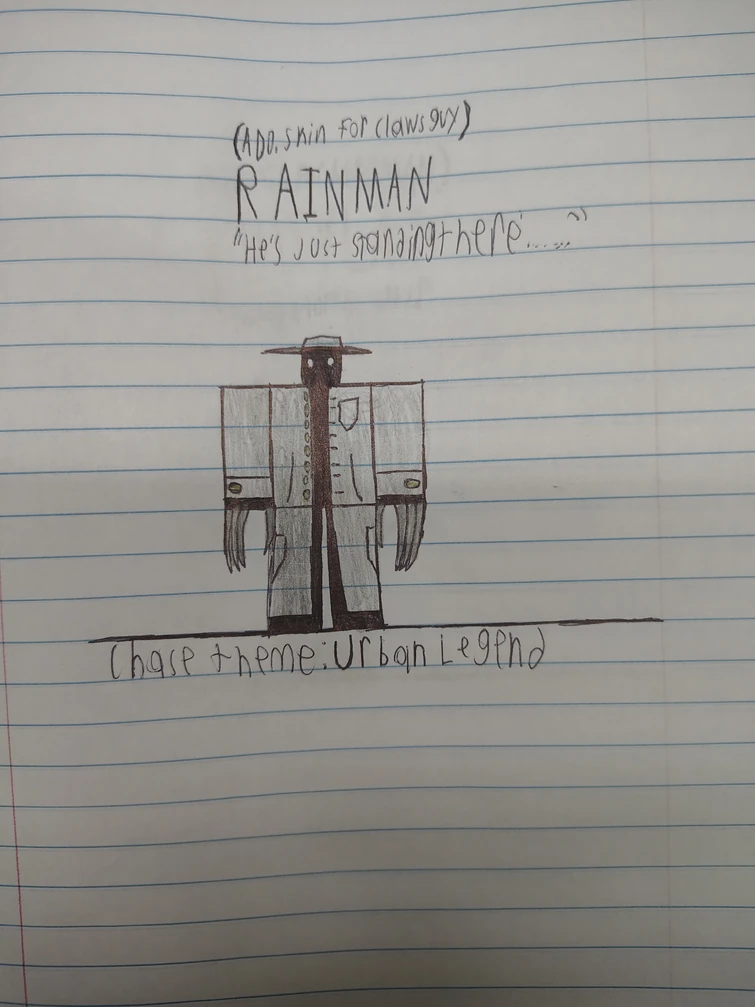 (ADD. skin for claws guy)
RAINMAN
"He's Just standing there......"
Chase theme: Urban Legend